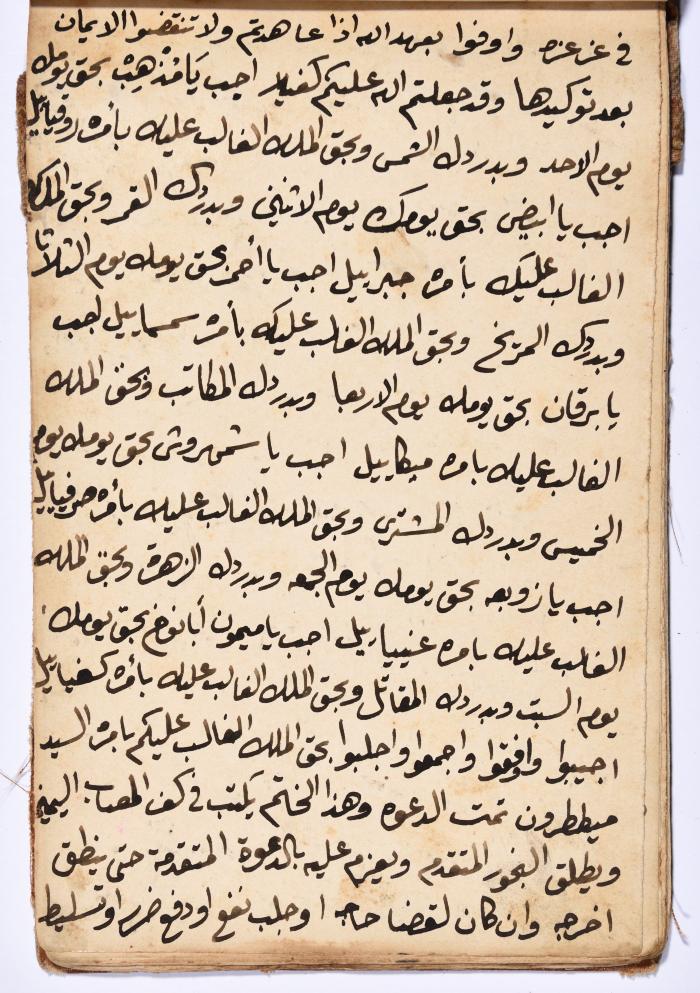 في عز عزه واوفوا بعهد الله اذا عاهدتم ولا تنقضوا الايمان
بعد توكيدها وقد جعلتم الله عليكم كفيلا اجب يا مذهب بحق يومك
يوم الاحد وبدردك الشمس وبحق الملك الغالب عليك بأمره روقيائيل
اجب يا ابيض بحق يومك يوم الاثنين وبدردك القمر وبحق الملك
الغالب عليك بأمره جبراييل اجب يا أحمر بحق يومك يوم الثلاثا
وبدردك المريخ وبحق الملك الغالب عليك بأمره سمساييل اجب
يا برقان بحق يومك يوم الاربعا وبدردك المكاتب وبحق الملك
الغالب عليك بامره ميكاييل اجب يا شمهروش بحق يومك يوم
الخميس وبدردك المشتري وبحق الملك الغالب عليك بأمره صرفياييل
اجب يا زوبعه بحق يومك يوم الجمعه وبدردك الزهرة وبحق الملك
الغالب عليك بامره عنيياييل اجب يا ميمون أبا نوخ بحق يومك
يوم السبت وبدردك المقاتل وبحق الملك الغالب عليك بأمره كسفياييل
اجيبوا وافوقوا واجمعوا واجلبوا بحق الملك الغالب عليكم بامره السيد
ميططرون تمت الدعوه وهذا الخاتم يكتب في كف المصاب اليمين
ويطلق البخور المتقدم ويعزم عليه بالدعوة المتقدمة حتى ينطق
اخرجه وان كان لقضا حاجه او جلب نفع او دفع ضرر او تسليط